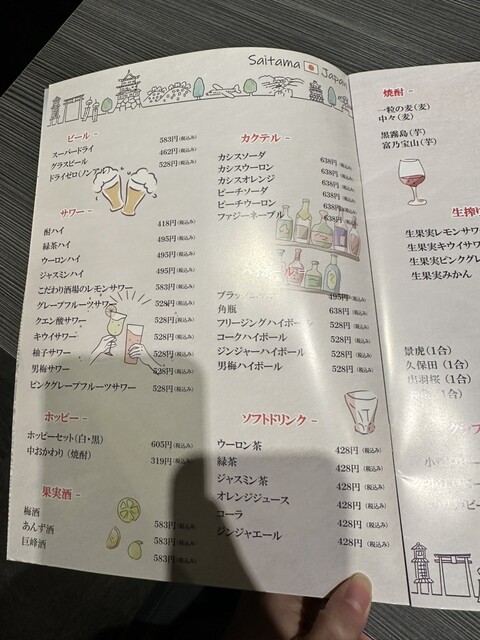 Saitama Japan
ビール -
スーパードライ 583円(税込み)
グラスビール 462円(税込み)
ドライゼロ(ノンアル) 528円(税込み)
サワー -
酎ハイ 418円(税込み)
緑茶ハイ 495円(税込み)
ウーロンハイ 495円(税込み)
ジャスミンハイ 495円(税込み)
こだわり酒場のレモンサワー 583円(税込み)
グレープフルーツサワー 528円(税込み)
クエン酸サワー 528円(税込み)
キウイサワー 528円(税込み)
柚子サワー 528円(税込み)
男梅サワー 528円(税込み)
ピンクグレープフルーツサワー 528円(税込み)
ホッピー -
ホッピーセット(白・黒) 605円(税込み)
中おかわり (焼酎) 319円(税込み)
果実酒 -
梅酒 583円(税込み)
あんず酒 583円(税込み)
巨峰酒 583円(税込み)
カクテル -
カシスソーダ 638円(税込み)
カシスウーロン 638円(税込み)
カシスオレンジ 638円(税込み)
ピーチソーダ 638円(税込み)
ピーチウーロン 638円(税込み)
ファジーネーブル 638円(税込み)
ブラック 495円(税込み)
角瓶 638円(税込み)
フリージングハイボール 528円(税込み)
コークハイボール 528円(税込み)
ジンジャーハイボール 528円(税込み)
男梅ハイボール 528円(税込み)
ソフトドリンク -
ウーロン茶 428円(税込み)
緑茶 428円(税込み)
ジャスミン茶 428円(税込み)
オレンジジュース 428円(税込み)
コーラ 428円(税込み)
ジンジャエール 428円(税込み)
焼酎 -
一粒の麦(麦)
中々(麦)
黒霧島(芋)
富乃宝山(芋)
生搾り
生果実レモンサワー
生果実キウイサワ
生果実ピンクグレ
生果実みかん
景虎(1合)
久保田(1合)
出羽桜(1合)